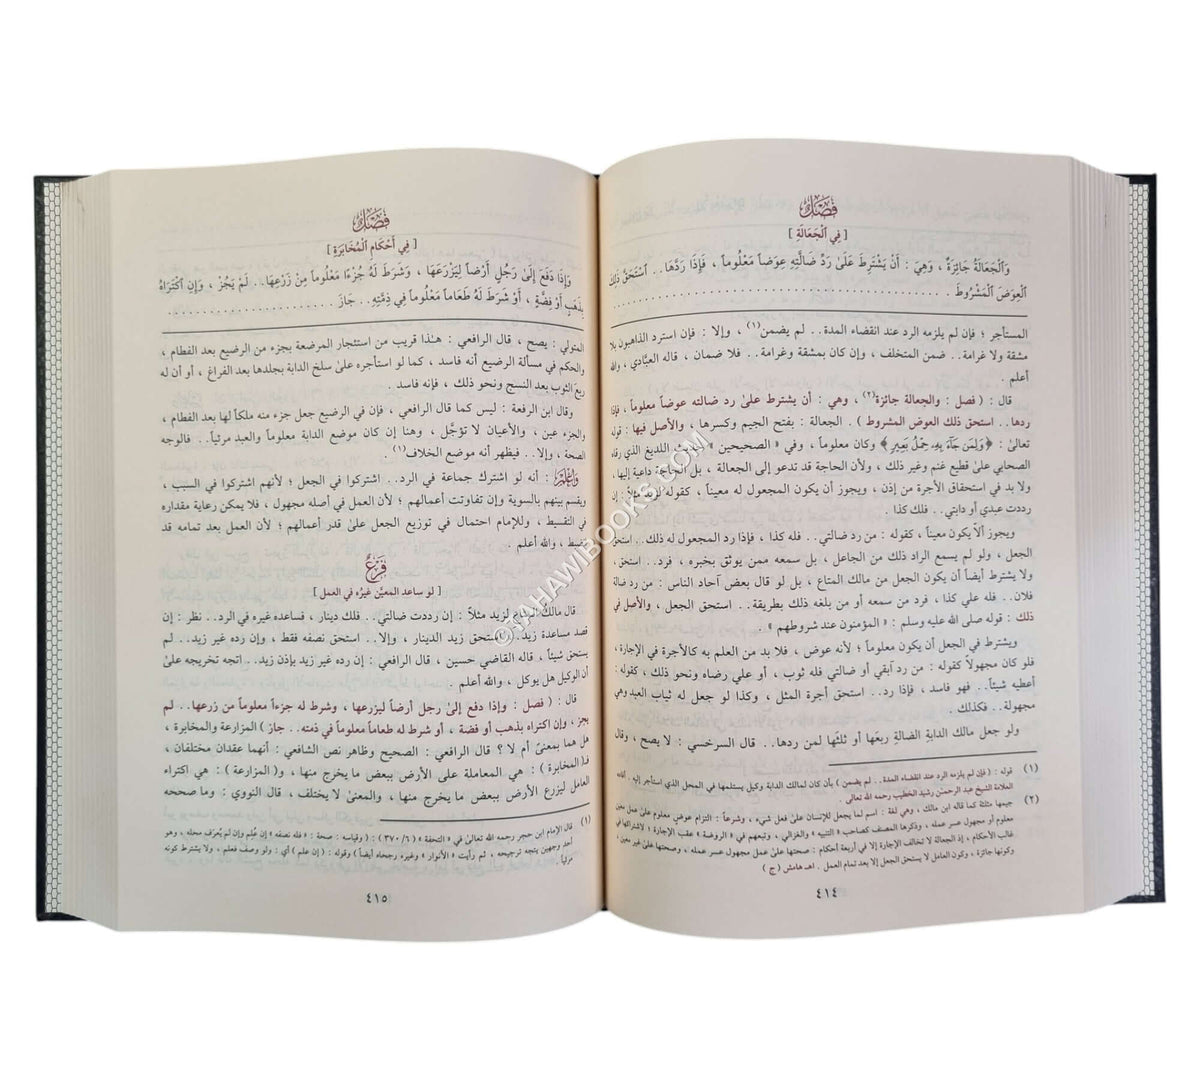 فَصْلٌ
[ فِي ٱلْجَعَالَةِ ]
وَٱلْجَعَالَةُ جَائِزَةٌ ، وَهِيَ : أَنْ يَشْتَرِطَ عَلَىٰ رَدِّ ضَالَّتِهِ عِوَضاً مَعْلُوماً ، فَإِذَا رَدَّهَا.. ٱسْتَحَقَّ ذَلِكَ
ٱلْعِوَضَ ٱلْمَشْرُوطَ .
المستأجر ؛ فإن لم يلزمه الرد عند انقضاء المدة.. لم يضمن(١) ، وإلا : فإن استرد الذاهبون بلا
مشقة ولا غرامة.. ضمن المتخلف ، وإن كان بمشقة وغرامة.. فلا ضمان ، قاله العبَّادي ، والله
أعلم .
قال : ( فصل : والجعالة جائزة(٢) ، وهي : أن يشترط علىٰ رد ضالته عوضاً معلوماً ، فإذا
ردها.. استحق ذلك العوض المشروط ) . الجعالة : بفتح الجيم وكسرها ، والأصل فيها : قوله
تعالىٰ : ﴿وَلِمَن جَآءَ بِهِۦ حِمْلُ بَعِيرٍ﴾ وكان معلوماً ، وفي « الصحيحين » اللديغ الذي رقاه
الصحابي علىٰ قطيع غنم وغير ذلك ، ولأن الحاجة قد تدعو إلى الجعالة ، بل الحاجة داعية إليها ،
ولا بد في استحقاق الأجرة من إذن ، ويجوز أن يكون المجعول له معيناً ، كقوله لزيد مثلاً : إن
رددت عبدي أو دابتي.. فلك كذا .
ويجوز ألاّ يكون معيناً ، كقوله : من رد ضالتي.. فله كذا ، فإذا رد المجعول له ذلك.. استحق
الجعل ، ولو لم يسمع الراد ذلك من الجاعل ، بل سمعه ممن يوثق بخبره ، فرد.. استحق ،
ولا يشترط أيضاً أن يكون الجعل من مالك المتاع ، بل لو قال بعض آحاد الناس : من رد ضالة
فلان.. فله علي كذا ، فرد من سمعه أو من بلغه ذلك بطريقة.. استحق الجعل ، والأصل في
ذلك : قوله صلى الله عليه وسلم : « المؤمنون عند شروطهم » .
ويشترط في الجعل أن يكون معلوماً ؛ لأنه عوض ، فلا بد من العلم به كالأجرة في الإجارة ،
فلو كان مجهولاً كقوله : من رد آبقي أو ضالتي فله ثوب ، أو علي رضاه ونحو ذلك ، كقوله :
أعطيه شيئاً.. فهو فاسد ، فإذا رد.. استحق أجرة المثل ، وكذا لو جعل له ثياب العبد وهي
مجهولة.. فكذلك .
ولو جعل مالك الدابة الضالة ربعَها أو ثلثَها لمن ردها.. قال السرخسي : لا يصح ، وقال
(١) قوله : ( فإن لم يلزمه الرد عند انقضاء المدة.. لم يضمن ) بأن كان لمالك الدابة وكيل يستلمها في المحل الذي استأجر إليه . أفاده
العلامة الشيخ عبد الرحمٰن رشيد الخطيب رحمه الله تعالى .
(٢) جيمها مثلثة كما قاله ابن مالك ، وهي لغة : اسم لما يجعل للإنسان على فعل شيء ، وشرعاً : التزام عوض معلوم علىٰ عمل معين
معلوم أو مجهول عسر عمله ، وذكرها المصنف كصاحب « التنبيه » والغزالي ، وتبعهم في « الروضة » عقب الإجارة ؛ لاشتراكها في
غالب الأحكام ، إذ الجعالة لا تخالف الإجارة إلا في أربعة أحكام : صحتها على عمل مجهول عسر عمله ، وصحتها مع غير معين ،
وكونها جائزة ، وكون العامل لا يستحق الجعل إلا بعد تمام العمل . اهـ هامش ( ج )
٤١٤
فَصْلٌ
[ فِي أَحْكَامِ ٱلْمُخَابَرَةِ ]
وَإِذَا دَفَعَ إِلَىٰ رَجُلٍ أَرْضاً لِيَزْرَعَهَا ، وَشَرَطَ لَهُ جُزْءًا مَعْلُوماً مِنْ زَرْعِهَا.. لَمْ يَجُزْ ، وَإِنِ ٱكْتَرَاهُ
بِذَهَبٍ أَوْ فِضَّةٍ ، أَوْ شَرَطَ لَهُ طَعَاماً مَعْلُوماً فِي ذِمَّتِهِ.. جَازَ .
المتولي : يصح ، قال الرافعي : هـٰذا قريب من استئجار المرضعة بجزء من الرضيع بعد الفطام ،
والحكم في مسألة الرضيع أنه فاسد ، كما لو استأجره علىٰ سلخ الدابة بجلدها بعد الفراغ ، أو أن له
ربعَ الثوب بعد النسج ونحو ذلك ، فإنه فاسد .
وقال ابن الرفعة : ليس كما قال الرافعي ، فإن في الرضيع جعل جزء منه ملكاً لها بعد الفطام ،
والجزء عين ، والأعيان لا تؤجَّل ، وهنا إن كان موضع الدابة معلوماً والعبد مرئياً.. فالوجه
الصحة ، وإلا.. فيظهر أنه موضع الخلاف(١) .
وَٱعْلَمْ : أنه لو اشترك جماعة في الرد.. اشتركوا في الجعل ؛ لأنهم اشتركوا في السبب ،
ويقسم بينهم بالسوية وإن تفاوتت أعمالهم ؛ لأن العمل في أصله مجهول ، فلا يمكن رعاية مقداره
في التقسيط ، وللإمام احتمال في توزيع الجعل علىٰ قدر أعمالهم ؛ لأن العمل بعد تمامه قد
ضبط ، والله أعلم .
فَرْعٌ
[ لو ساعد المعيَّن غيرُه في العمل ]
قال مالك المتاع لزيد مثلاً : إن رددت ضالتي.. فلك دينار ، فساعده غيره في الرد.. نظر : إن
قصد مساعدة زيد.. استحق زيد الدينار ، وإلا.. استحق نصفه فقط ، وإن رده غير زيد.. لم
يستحق شيئاً ، قاله القاضي حسين ، قال الرافعي : إن رده غير زيد بإذن زيد.. اتجه تخريجه علىٰ
أن الوكيل هل يوكل ، والله أعلم .
قال : ( فصل : وإذا دفع إلىٰ رجل أرضاً ليزرعها ، وشرط له جزءاً معلوماً من زرعها.. لم
يجز ، وإن اكتراه بذهب أو فضة ، أو شرط له طعاماً معلوماً في ذمته.. جاز ) المزارعة والمخابرة ،
هل هما بمعنىً أم لا ؟ قال الرافعي : الصحيح وظاهر نص الشافعي : أنهما عقدان مختلفان ،
فـ( المخابرة ) : هي المعاملة على الأرض ببعض ما يخرج منها ، و( المزارعة ) : هي اكتراء
العامل ليزرع الأرض ببعض ما يخرج منها ، والمعنىٰ لا يختلف ، قال النووي : وما صححه
(١) قال الإمام ابن حجر رحمه الله تعالى في « التحفة » ( ٣٧٠/٦ ) : ( وقياسه : صحة : « فله نصفه » إن عُلم وإن لم يُعرَف محله ، وهو
أحد وجهين يتجه ترجيحه ، ثم رأيت « الأنوار » وغيره رجحاه أيضاً ) وقوله : ( إن علم ) أي : ولو وصف فعلم ، ولا يشترط كونه
مرئياً
٤١٥
©TAHAWIBOOKS.COM